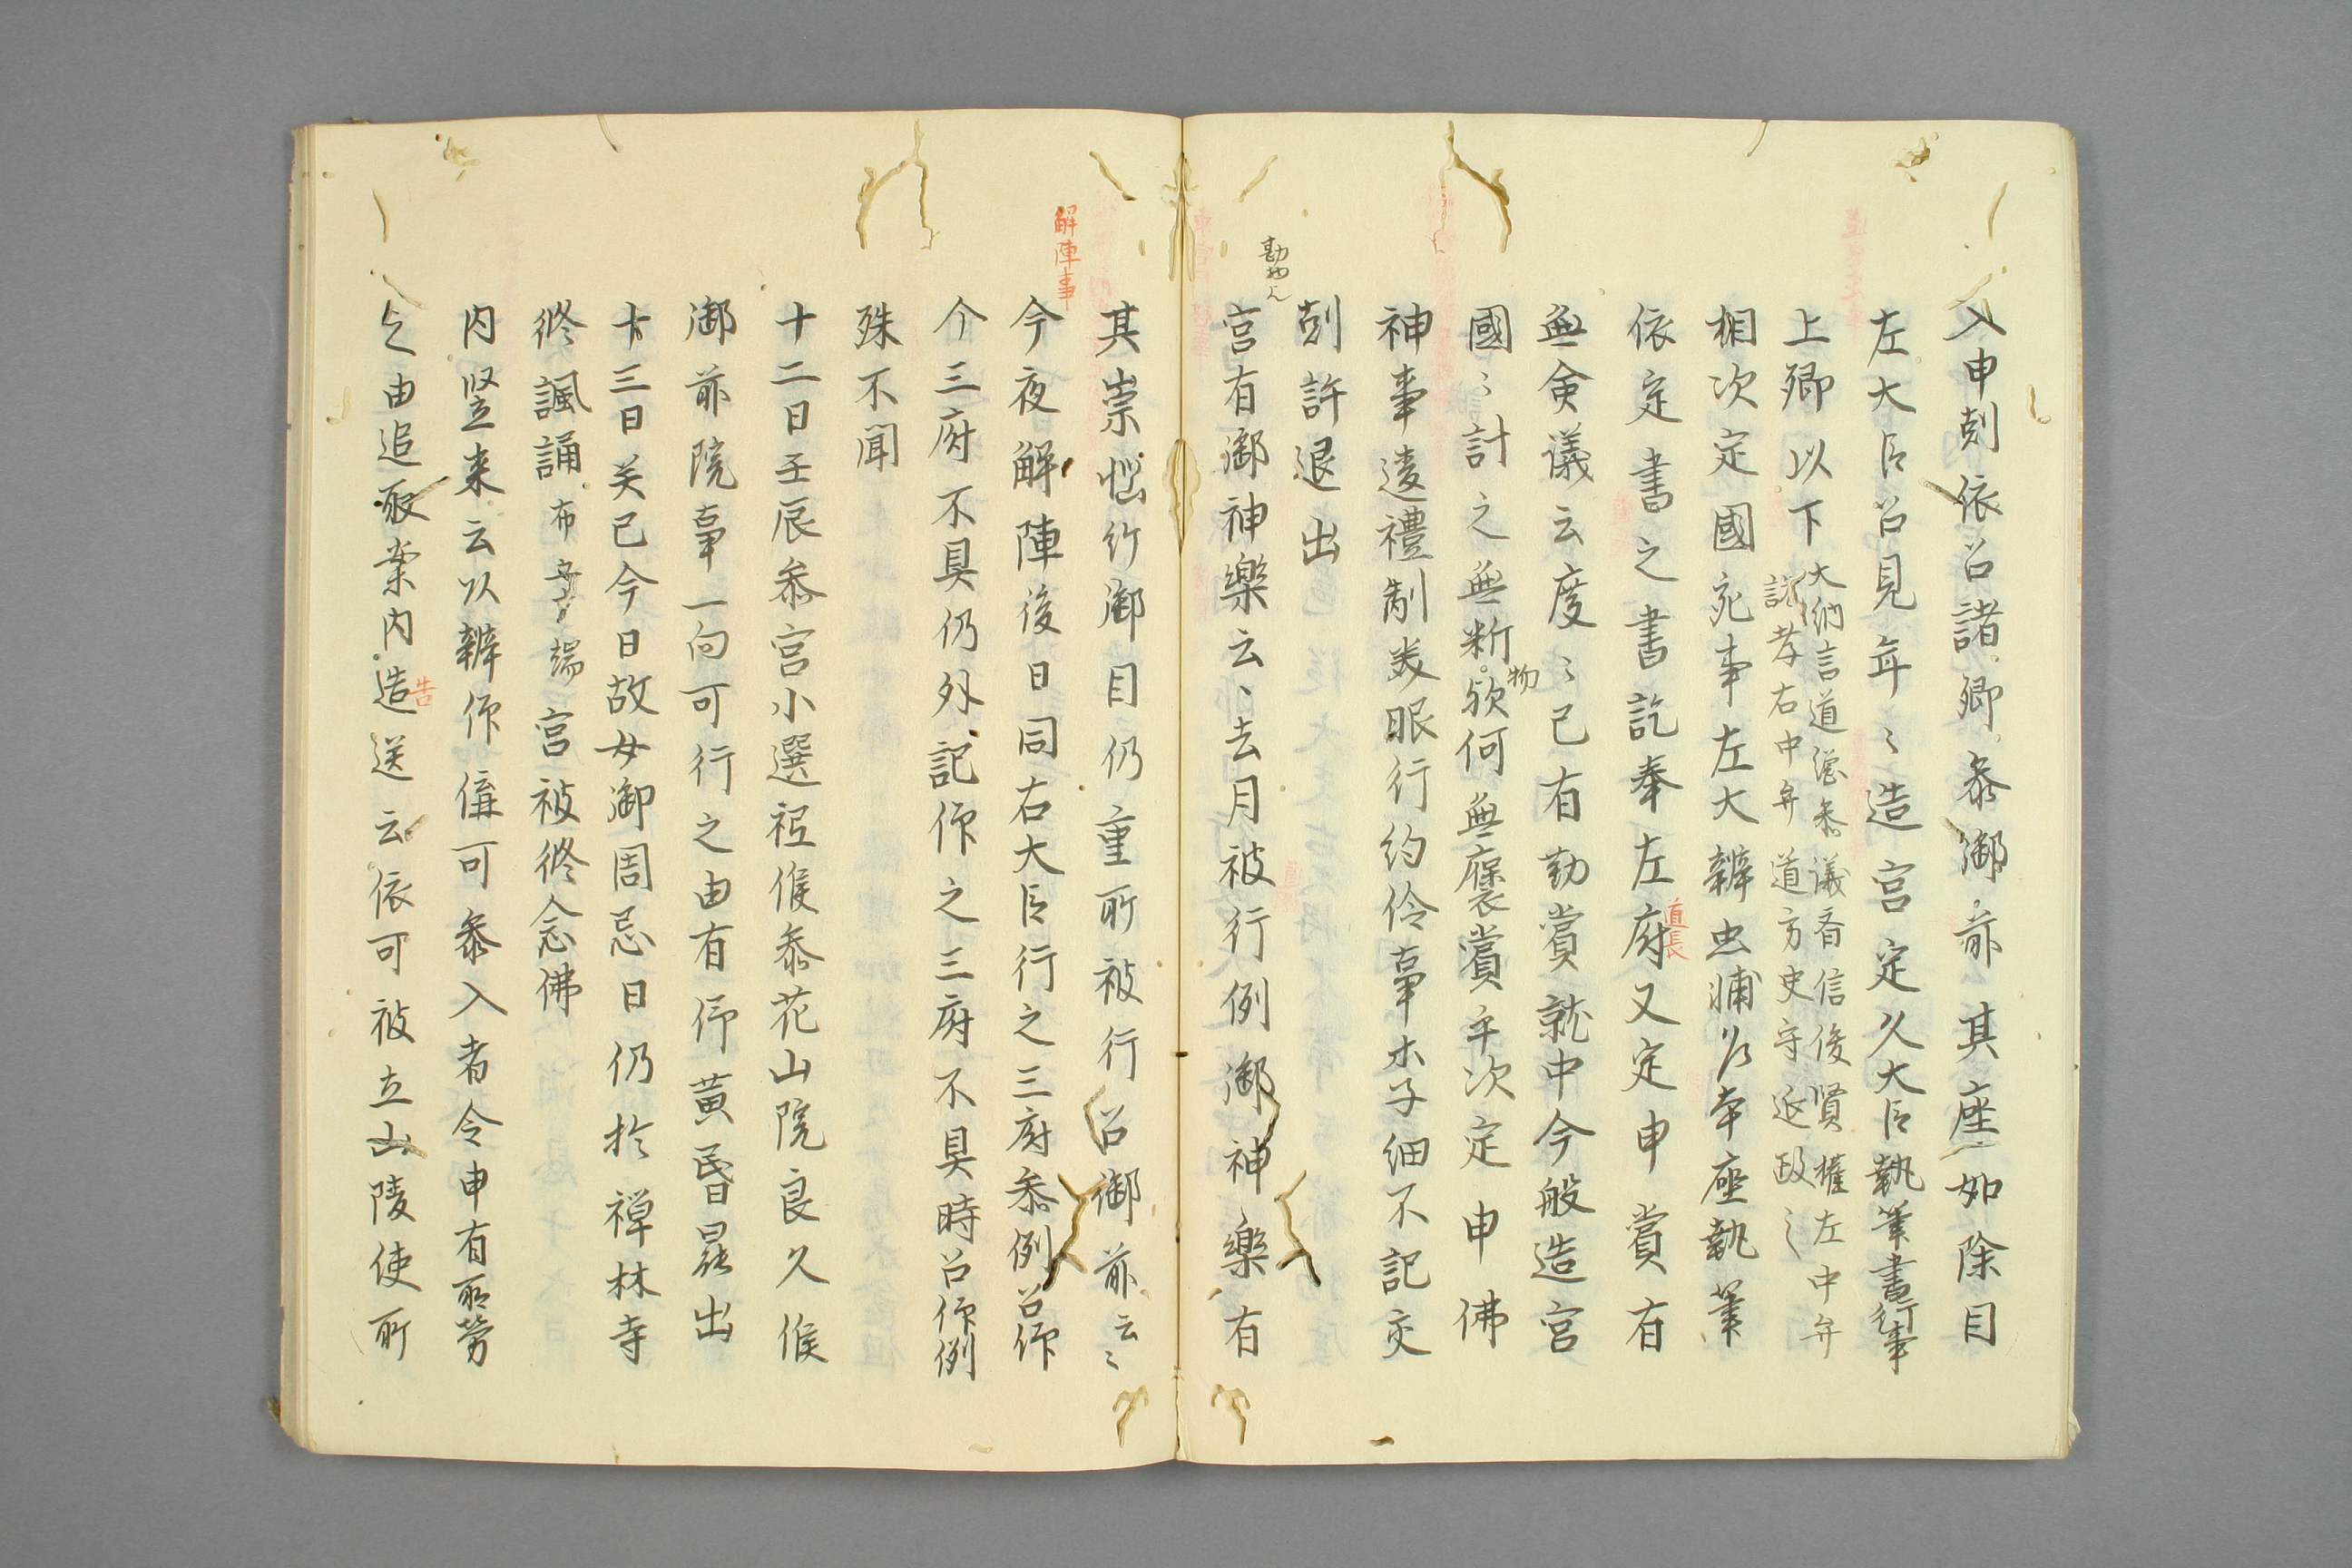 入申剋依召諸卿參御前其座如除目
左大臣召見年〻造宮定久大臣執筆書行事
上卿以下
大納言道綱參議斉信俊賢權左中弁
説孝右中弁道方史守延政之
相次定國宛事左大辨忠輔以本座執筆
道長
依定書之書訖奉左府又定申賞有
無僉議云度〻已有勤賞就中今般造宮
國〻計之無断欤何無褒賞乎次定申佛
物
神事違禮制美眼行約伶事ホ子細不記亥
剋許退出
宮有御神樂云〻去月被行例御神樂有
其祟惱行御目仍重所被行召御前云〻
解陣事
今夜解陣後日同右大臣行之三府參例召作
介三府不具仍外記作之三府不具時召作例
殊不聞
十二日壬辰參宮小選祗候參花山院良久候
御前院事一向可行之由有仰黄昏昆出
十三日癸巳今日故女御周忌日仍於禅林寺
修諷誦布端宮被修念佛
内竪来云以辨作偁可參入者令申有所勞
之由追取案内造送云依可被立山陵使所
告